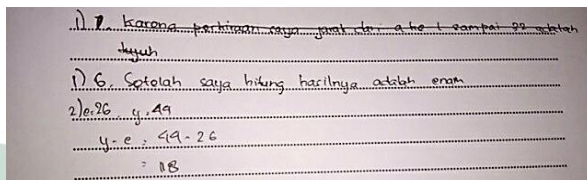 1) 7. Karena perkiraan saya jarak dari a ke t sampai 32 adalah
tujuh
1) 6. Setelah saya hitung hasilnya adalah enam
2) e=26, y=44
y-e = 44-26
= 18